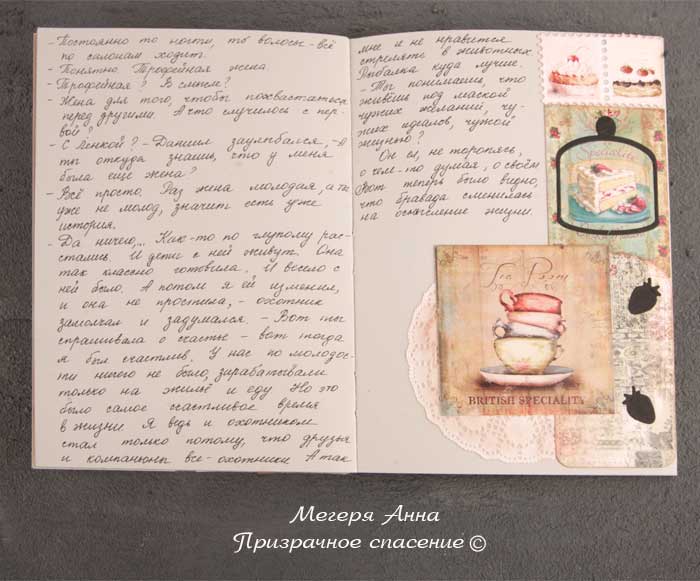 - Постоянно то ногти, то волосы - всё
по салонам ходит.
- Понятно. Трофейная жена
- Трофейная? В смысле?
- Жена для того, чтобы похвастаться
перед другими. А что случилось с пер-
вой?
- С Ленкой? - Даниил заулыбался, - А
ты откуда знаешь, что у меня
была ещё жена?
- Всё просто. Раз жена молодая, а ты
уже не молод, значит есть уже
история.
- Да ничего,.. Как-то по глупому рас-
стались. И дети с ней живут. Она
так классно готовила. И весело с
ней было. А потом я ей изменил,
и она не простила, - охотник
замолчал и задумался. - Вот ты
спрашивала о счастье - вот тогда
я был счастлив. У нас по молодос-
ти ничего не было, зарабатывали
только на жильё и еду Но это
было самое счастливое время
в жизни Я ведь и охотником
стал только потому, что друзья
и компаньоны все - охотники А так
мне и не нравится
стрелять в животных
Рыбалка куда лучше.
- Ты понимаешь, что
живёшь под маской
чужих желаний, чу-
жих идеалов, чужой
жизнью?
Он ел, не торопясь,
о чем-то думая, о своём
Вот теперь было видно,
что бравада сменилась
на осмысление жизни.
Speciality
Tea Room
BRITISH SPECIALITY
Мегеря Анна
Призрачное спасение ©